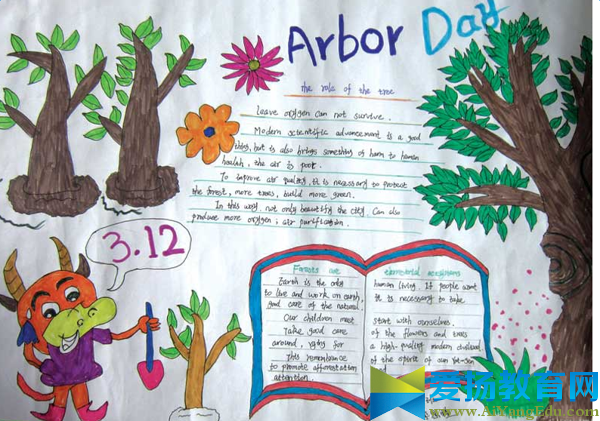 Arbor Day
the role of the tree
Leave oxygen can not survive.
Modern scientific advancement is a good
thing, but is also brings something of harm to human
health, the air is poor.
To improve air quality, it is necessary to protect
the forest, more trees, build more green.
In this way, not only beautify the city. Can also
produce more oxygen; air purification.
3.12
Forests are
Earth is the only
to live and work on earth,
good care of the natural.
Our children meet
Take good care
around, vying for
This remembrance
to promote afforestation
attention.
terrestrial ecosystems
human living. If people want
It is necessary to take
start with ourselves
of the flowers and trees
a high-quality modern
of the spirit of sun Yat-Sen
爱扬教育网
www.AiYangEdu.com